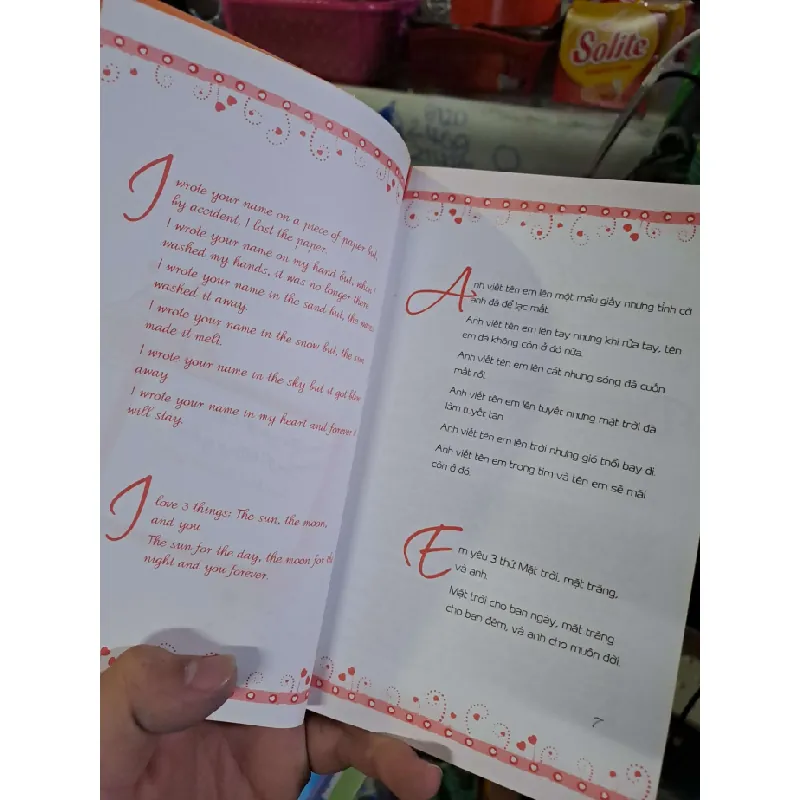 Solite
I wrote your name on a piece of paper but,
by accident, I lost the paper.
I wrote your name on my hand but, when I
washed my hands, it was no longer there.
I wrote your name in the sand but, the waves
washed it away.
I wrote your name in the snow but, the sun
made it melt.
I wrote your name in the sky but it got blow
away
I wrote your name in my heart and forever it
will stay.
I love 3 things: The sun, the moon,
and you
The sun for the day, the moon for the
night and you forever.
Anh viết tên em lên một mẩu giấy nhưng tình cờ
anh đã để lạc mất.
Anh viết tên em lên tay nhưng khi rửa tay, tên
em đã không còn ở đó nữa.
Anh viết tên em lên cát nhưng sóng đã cuốn
mất rồi.
Anh viết tên em lên tuyết nhưng mặt trời đã
làm tuyết tan
Anh viết tên em lên trời nhưng gió thổi bay đi.
Anh viết tên em trong tim và tên em sẽ mãi
còn ở đó.
Em yêu 3 thứ Mặt trời, mặt trăng,
và anh.
Mặt trời cho ban ngày, mặt trăng
cho ban đêm, và anh cho muôn đời.
7